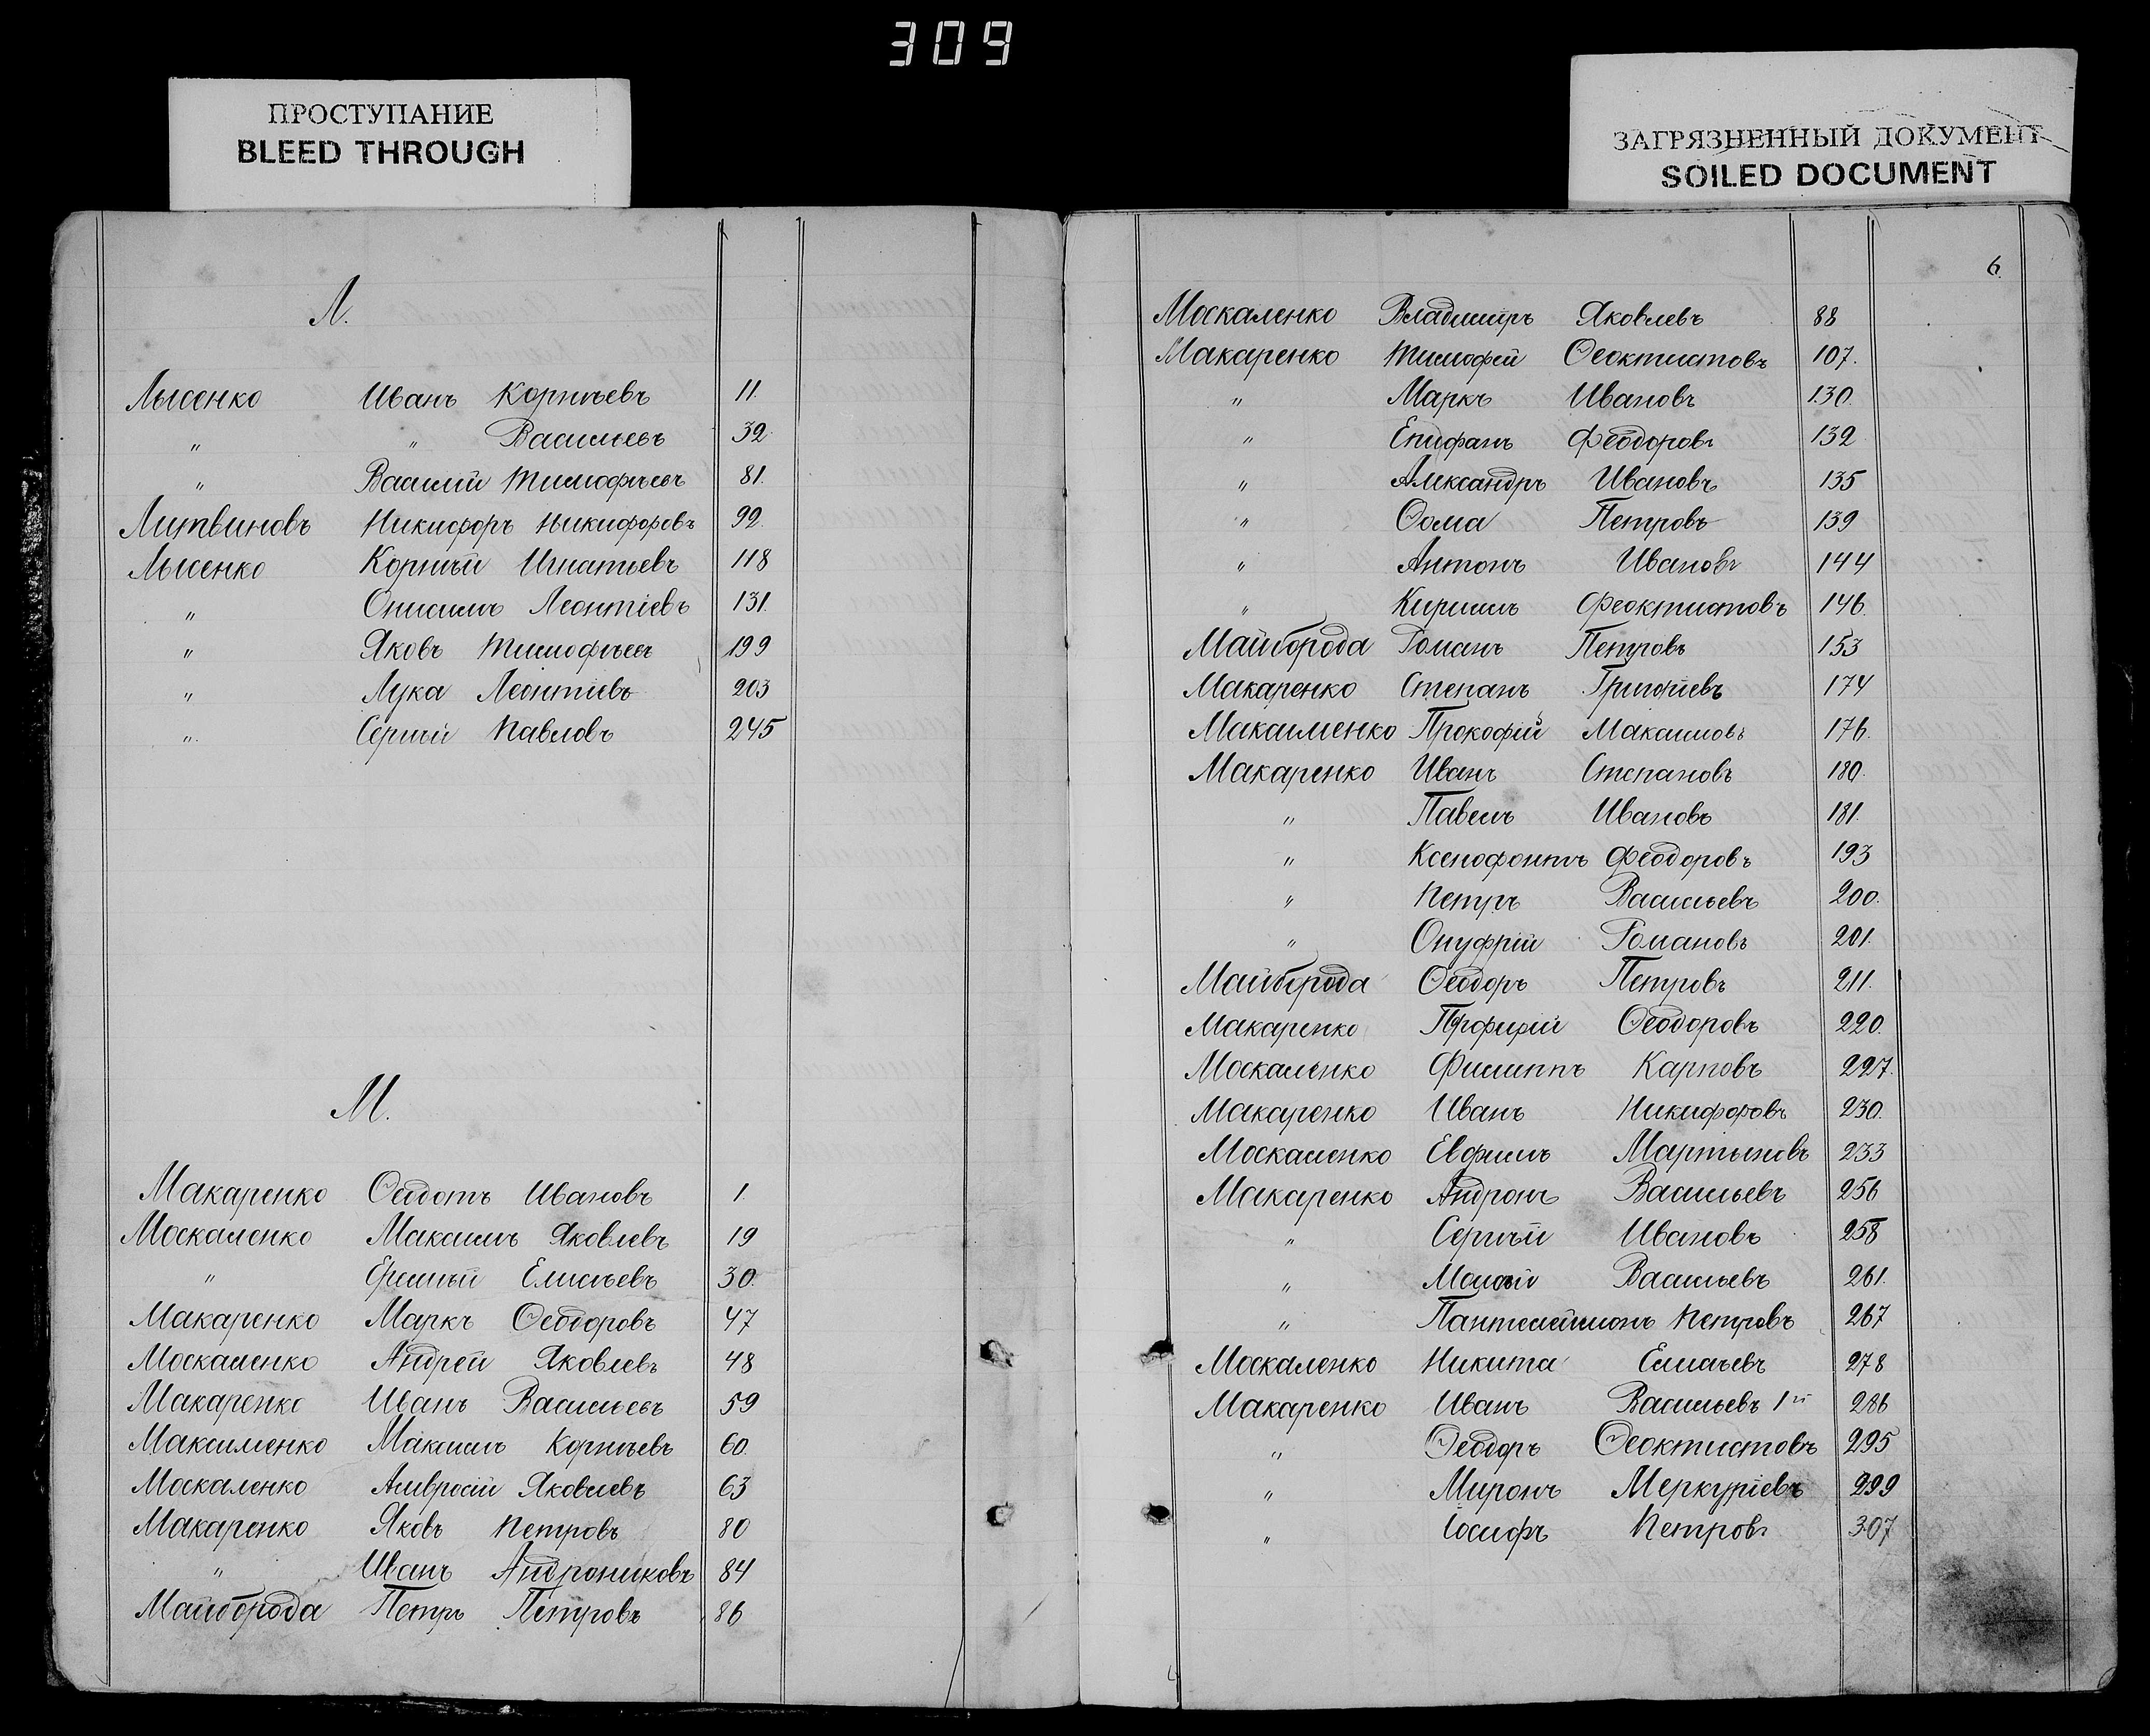 309
ПРОСТУПАНИЕ
BLEED THROUGH
ЗАГРЯЗНЕННЫЙ ДОКУМЕНТ
SOILED DOCUMENT
Л.
Лысенко Иванъ Корнѣевъ 11.
" " Васильевъ 32
" Василій Тимофѣевъ 81.
Литвиновъ Никифоръ Никифоровъ 92.
Лысенко Корнѣй Игнатьевъ 118
" Онисимъ Леонтіевъ 131.
" Яковъ Тимофѣевъ 199
" Лука Леонтіевъ 203
" Сергѣй Павловъ 245
М.
Макаренко Ѳедотъ Ивановъ 1.
Москаленко Максимъ Яковлевъ 19
" Еремѣй Елисѣевъ 30.
Макаренко Маркъ Ѳеодоровъ 47
Москаленко Андрей Яковлевъ 48
Макаренко Иванъ Васильевъ 59
Максименко Максимъ Корнѣевъ 60.
Москаленко Амвросій Яковлевъ 63
Макаренко Яковъ Петровъ 80
" Иванъ Андрониковъ 84
Майборода Петръ Петровъ 86
6.
Москаленко Владиміръ Яковлевъ 88
Макаренко Тимофей Ѳеоктистовъ 107.
" Маркъ Ивановъ 130.
" Епифанъ Феодоровъ 132
" Александръ Ивановъ 135
" Ѳома Петровъ 139
" Антонъ Ивановъ 144
" Кирилъ Феоктистовъ 146.
Майборода Романъ Петровъ 153
Макаренко Степанъ Григорьевъ 174
Максименко Прокофій Максимовъ 176.
Макаренко Иванъ Степановъ 180.
" Павелъ Ивановъ 181.
" Ксенофонтъ Феодоровъ 193
" Петръ Васильевъ 200.
" Онуфрій Романовъ 201.
Майборода Ѳеодоръ Петровъ 211.
Макаренко Порфирій Ѳеодоровъ 220.
Москаленко Филиппъ Карповъ 227.
Макаренко Иванъ Никифоровъ 230.
Москаленко Евфимъ Мартыновъ 233
Макаренко Андронъ Васильевъ 256
" Сергѣй Ивановъ 258
" Моисѣй Васильевъ 261.
" Пантелеймонъ Петровъ 267
Москаленко Никита Елисѣевъ 278
Макаренко Иванъ Васильевъ 1й 286
" Ѳеодоръ Ѳеоктистовъ 295
" Миронъ Меркуріевъ 299
" Іосифъ Петровъ 307